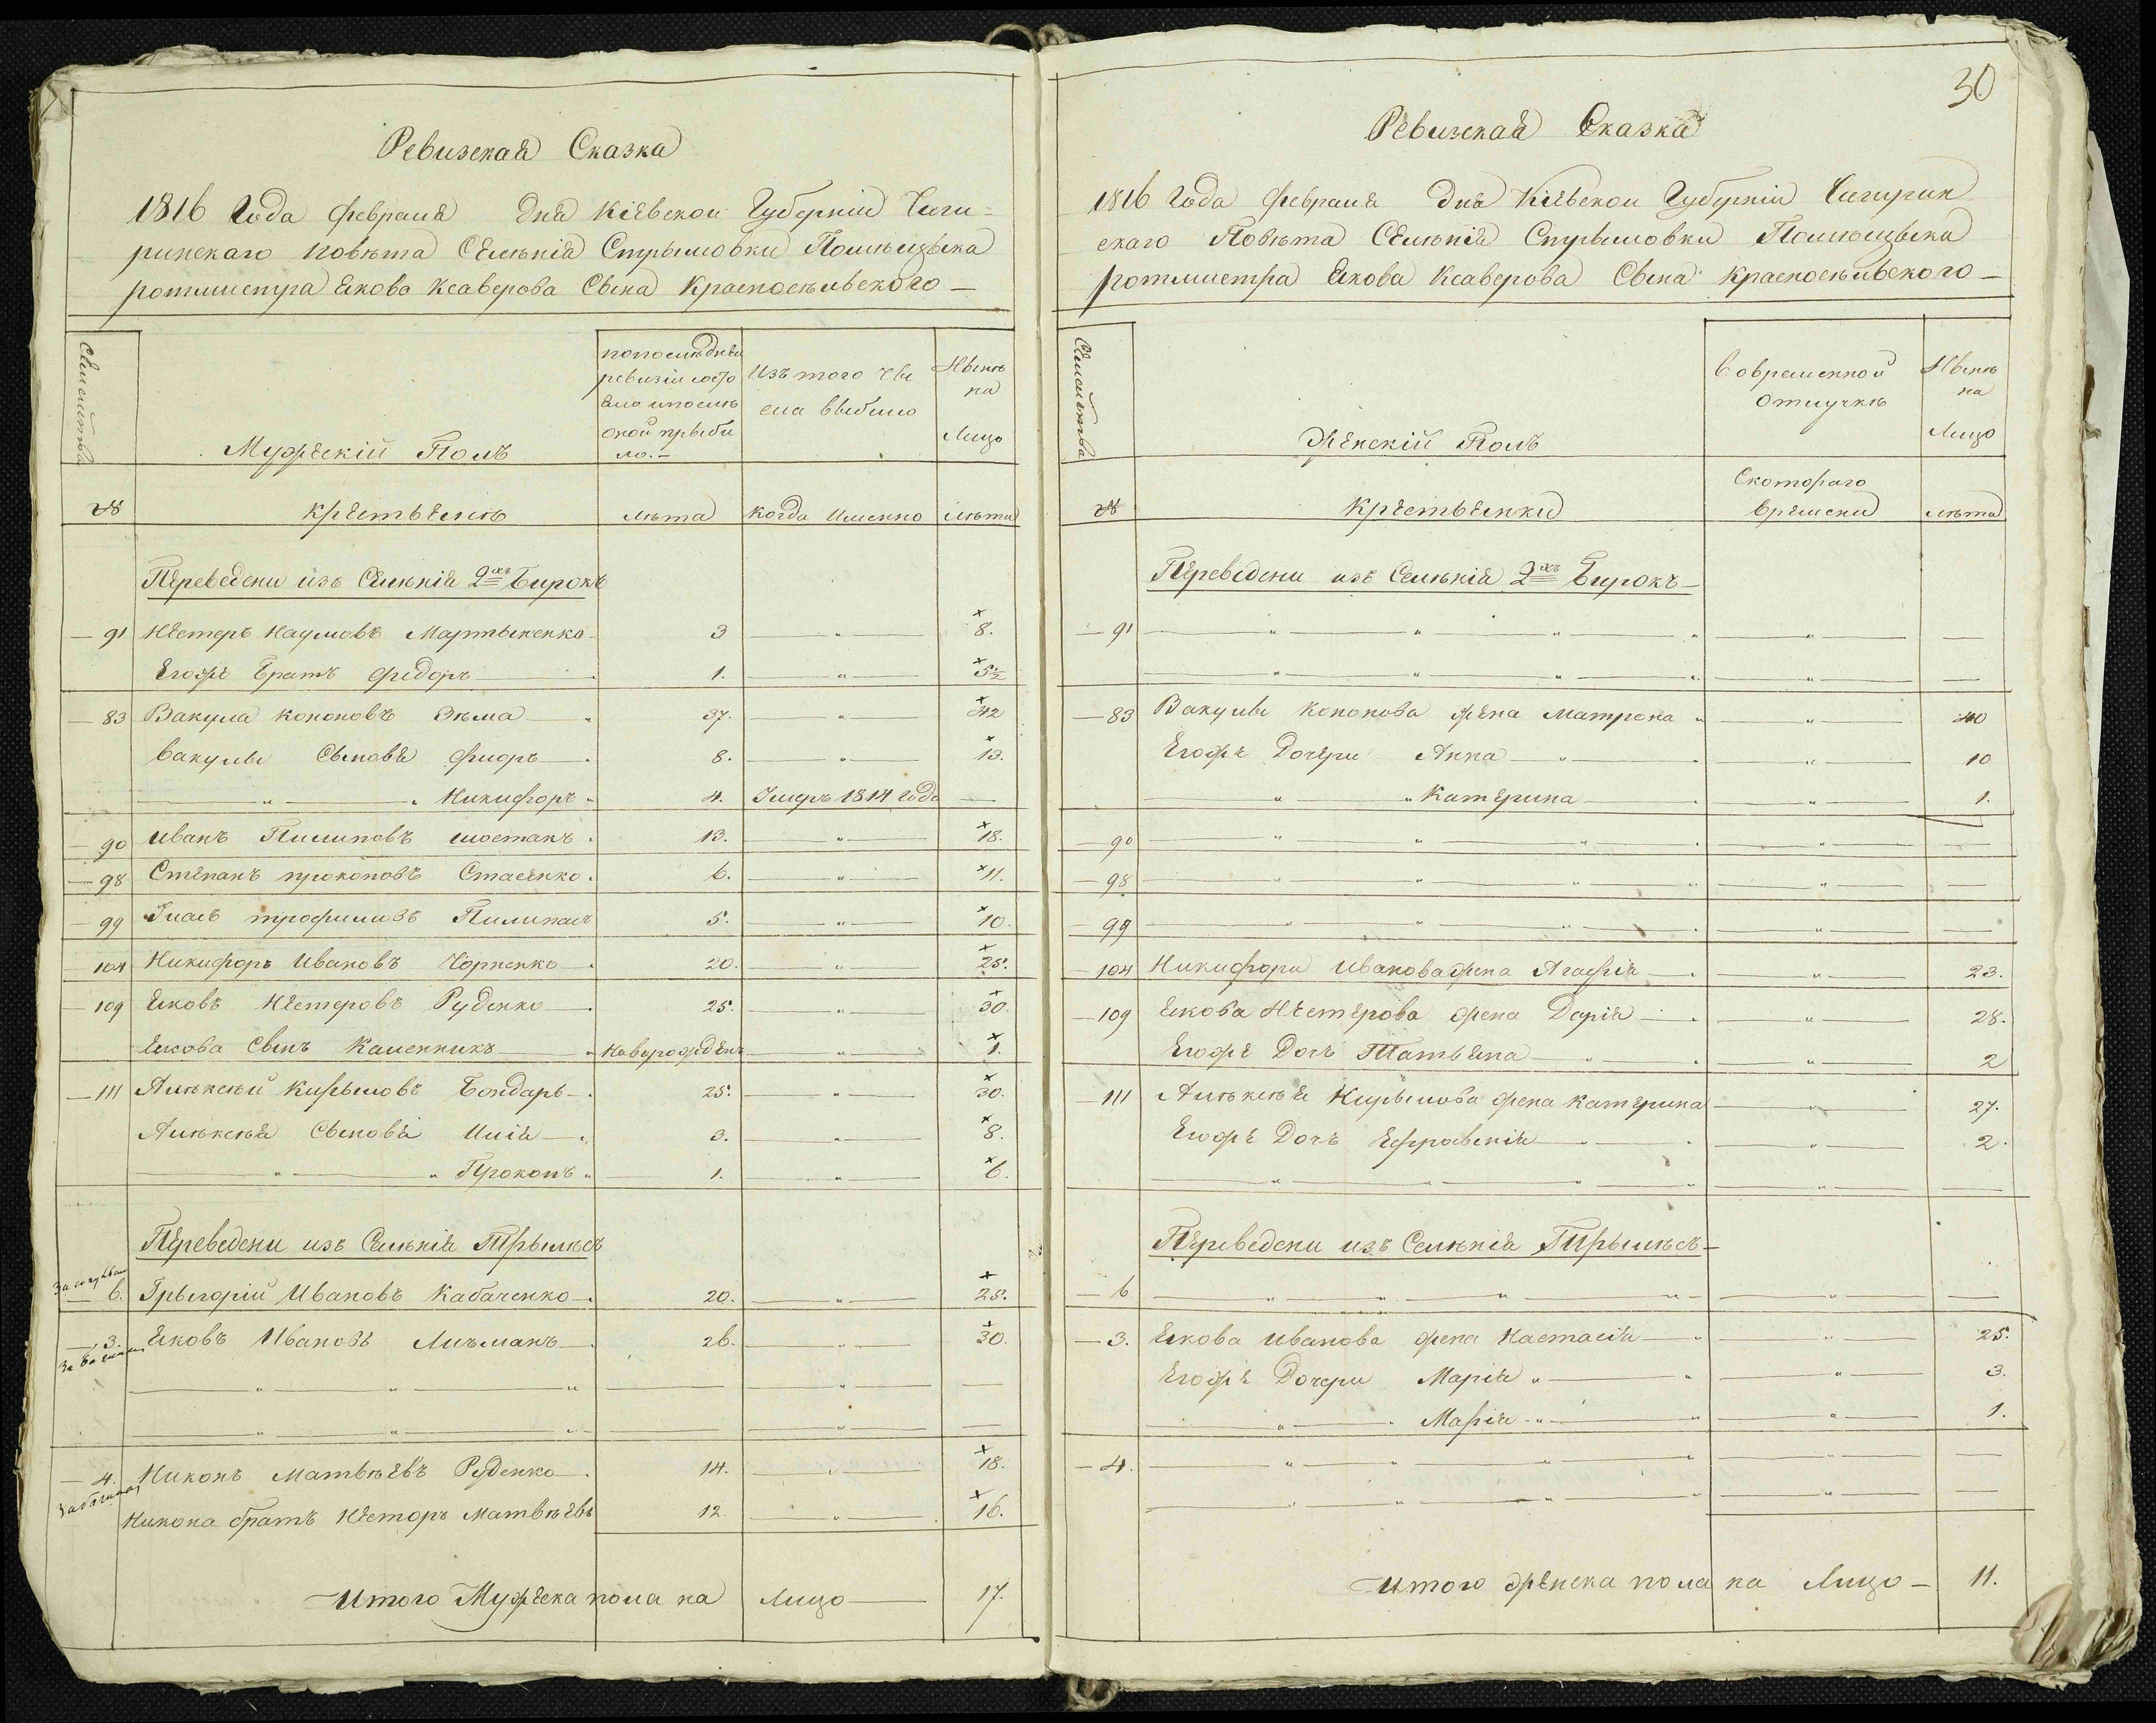 Ревизская Сказка
1816 Года февраля Дня Кіевской Губерніи Чиги=
ринскаго повѣта Селѣнія Стрымовки Помѣщыка
ротмистра Якова Ксаверова Сына Красносѣльского —
Семейства
Мужескій Полъ
попослѣднѣй
ревизіи состо
яло ипослѣ
оной прыбы
ло. —
Изъ того чи
сла выбыло
Нынѣ
на
Лицо
№
крестьянѣ
лѣта
когда Именно
лѣта
Переведени изъ Селѣнія 2хъ Бирокъ
— 91 Нестеръ Наумовъ Мартыненко 3 — " — 8.
Егоже Братъ Федоръ 1. — " — 5½
— 83 Вакула кононовъ Зьма 37. — " — 42
Вакулы Сыновя Флоръ 8. — " — 13.
" Никифоръ 4. Умеръ 1814 Года —
— 90 Иванъ Пилиповъ шостакъ 13. — " — 18.
— 98 Степанъ прокоповъ Стасенко 6. — " — 11.
— 99 Уласъ трофимовъ Пилипась 5. — " — 10.
— 104 Никифоръ Ивановъ Чорненко 20. — " — 25.
— 109 Яковъ Нестеровъ Руденко 25. — " — 30.
Якова Сынъ Каленникъ Новорожденъ — " — 1.
— 111 Алѣксѣй Кирыловъ Бондаръ 25. — " — 30.
Алѣксѣя Сыновя Илія 3. — " — 8.
" Прокопъ 1. — " — 6.
Переведени изъ Селѣнія Трылѣсъ
— 6. Грыгорій Ивановъ Кабаченко 20. — " — 25.
— 3. Яковъ Ивановъ Лисманъ 26. — " — 30.
— " — " — " — " —
— " — " — " — " —
— 4. Никонъ Матвѣевъ Руденко 14. — " — 18.
Никона братъ Нестеръ Матвѣевъ 12. — " — 16.
Итого Мужеска пола на Лицо — 17.
30
Ревизская Сказка
1816 Года февраля Дня Кіевской Губерніи Чигирин
скаго Повѣта Селѣнія Стрымовки Помѣщыка
ротмистра Якова Ксаверова Сына Красносѣльского —
Семейства
Женскій Полъ
Вовременной
отлучкѣ
Нынѣ
на
Лицо
№
Крестьянки
Скотораго
времени
лѣта
Переведени изъ Селѣнія 2хъ Бирокъ —
— 91 — " — " — " — " —
— " — " — " — " —
— 83 Вакулы Кононова жена Матрона — " — 40
Егоже Дочери Анна — " — 10
— " — " Катерина — " — 1.
— 90 — " — " — " — " —
— 98 — " — " — " — " —
— 99 — " — " — " — " —
— 104 Никифора Иванова жена Агафія — " — 23.
— 109 Якова Нестерова жена Дарія — " — 28.
Егоже Дочъ Татьяна — " — 2
— 111 Алѣксѣя Кирылова жена Катерина — " — 27.
Егоже Дочъ Ефросинія — " — 2.
— " — " — " — " —
Переведени изъ Селѣнія Трылѣсъ —
— 6 — " — " — " — " —
— 3. Якова Иванова жена Настасія — " — 25.
Егоже Дочери Марія — " — 3.
— " — Марія — " — 1.
— 4. — " — " — " — " —
— " — " — " — " —
Итого женска пола на Лицо — 11.